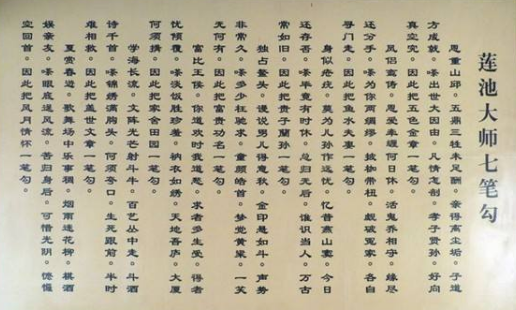 莲池大师七笔勾
恩重山邱。五鼎三牲未足酬。亲得离尘垢。子道
方成就。嗏出世大因由。凡情怎剖。孝子贤孙。好向
真空究。因此把五色金章一笔勾。
凤侣鸾俦。恩爱牵缠何日休。活鬼乔相守。缘尽
还分手。嗏为你两绸缪。披枷带杻。觑破冤家。各自
寻门走。因此把鱼水夫妻一笔勾。
身似疮疣。莫为儿孙作远忧。忆昔燕山窦。今日
还存否。嗏毕竟有时休。总归无后。谁识当人。万古
常如旧。因此把贵子兰孙一笔勾。
独占鳌头。谩说男儿得意秋。金印悬如斗。声势
非常久。嗏多少枉驰求。童颜皓首。梦觉黄粱。一笑
无何有。因此把富贵功名一笔勾。
富比王侯。你道欢时我道愁。求者多生受。得者
忧倾覆。嗏淡饭胜珍羞。衲衣如绣。天地吾庐。大厦
何须搆。因此把家舍田园一笔勾。
学海长流。文阵光芒射斗牛。百艺丛中走。斗酒
诗千首。嗏锦绣满胸头。何须夸口。生死跟前。半时
难相救。因此把盖世文章一笔勾。
夏赏春游。歌舞场中乐事稠。烟雨迷花柳。棋酒
娱亲友。嗏眼底逞风流。苦归身后。可惜光阴。懡㦬
空回首。因此把风月情怀一笔勾。